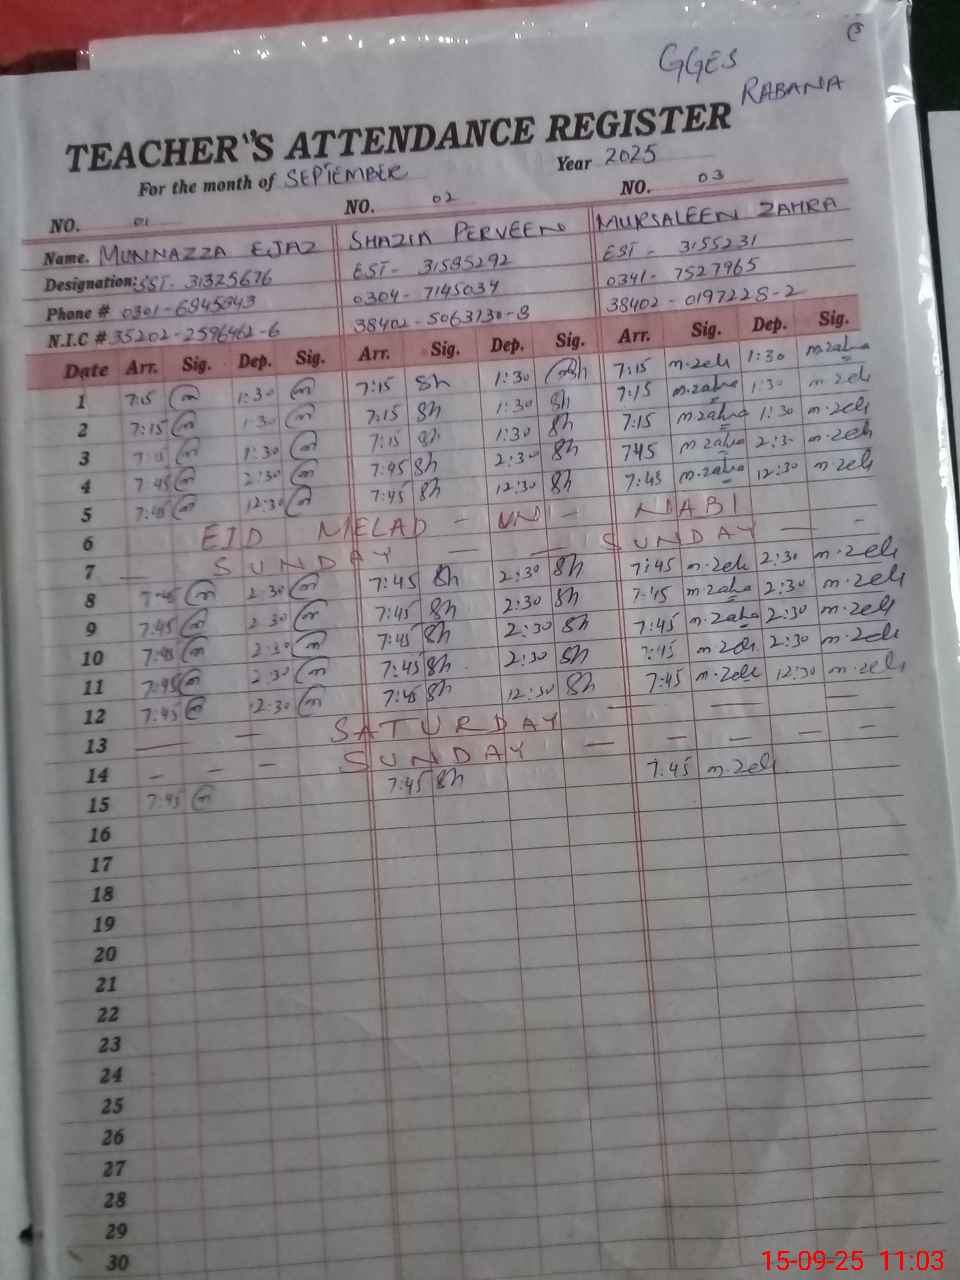 GGES
RABANA
TEACHER'S ATTENDANCE REGISTER
For the month of SEPTEMBER Year 2025
NO. 01 NO. 02 NO. 03
Name. MUNNAZZA EJAZ SHAZIA PERVEEN MURSALEEN ZAHRA
Designation: SST- 31325676 EST- 31585292 EST- 3155231
Phone # 0301-6845843 0304-7145034 0341-7527965
N.I.C # 35202-2596462-6 38402-5063730-8 38402-0197228-2
Date Arr. Sig. Dep. Sig. Arr. Sig. Dep. Sig. Arr. Sig. Dep. Sig.
1 7:15 m 1:30 m 7:15 Sh 1:30 Sh 7:15 m.zeh 1:30 m.zahra
2 7:15 m 1:30 m 7:15 Sh 1:30 Sh 7:15 m.zahra 1:30 m.zeh
3 7:15 m 1:30 m 7:15 Sh 1:30 Sh 7:15 m.zahra 1:30 m.zeh
4 7:45 m 2:30 m 7:45 Sh 2:30 Sh 745 m.zahra 2:3- m.zeh
5 7:45 m 12:30 m 7:45 Sh 12:30 Sh 7:45 m.zahra 12:30 m.zeh
6 EID MELAD - UN - NABI
7 — SUNDAY — — SUNDAY — -
8 7:45 m 2:30 m 7:45 Sh 2:30 Sh 7:45 m.zeh 2:30 m.zeh
9 7:45 m 2:30 m 7:45 Sh 2:30 Sh 7:45 m.zahra 2:30 m.zeh
10 7:45 m 2:30 m 7:45 Sh 2:30 Sh 7:45 m.zahra 2:30 m.zeh
11 7:45 m 2:30 m 7:45 Sh 2:30 Sh 7:45 m.zeh 2:30 m.zeh
12 7:45 m 12:30 m 7:45 Sh 12:30 Sh 7:45 m.zeh 12:30 m.zeh
13 — — SATURDAY — — —
14 - - - SUNDAY — — — — —
15 7:45 m 7:45 Sh 7:45 m.zeh
16
17
18
19
20
21
22
23
24
25
26
27
28
29
30
15-09-25 11:03